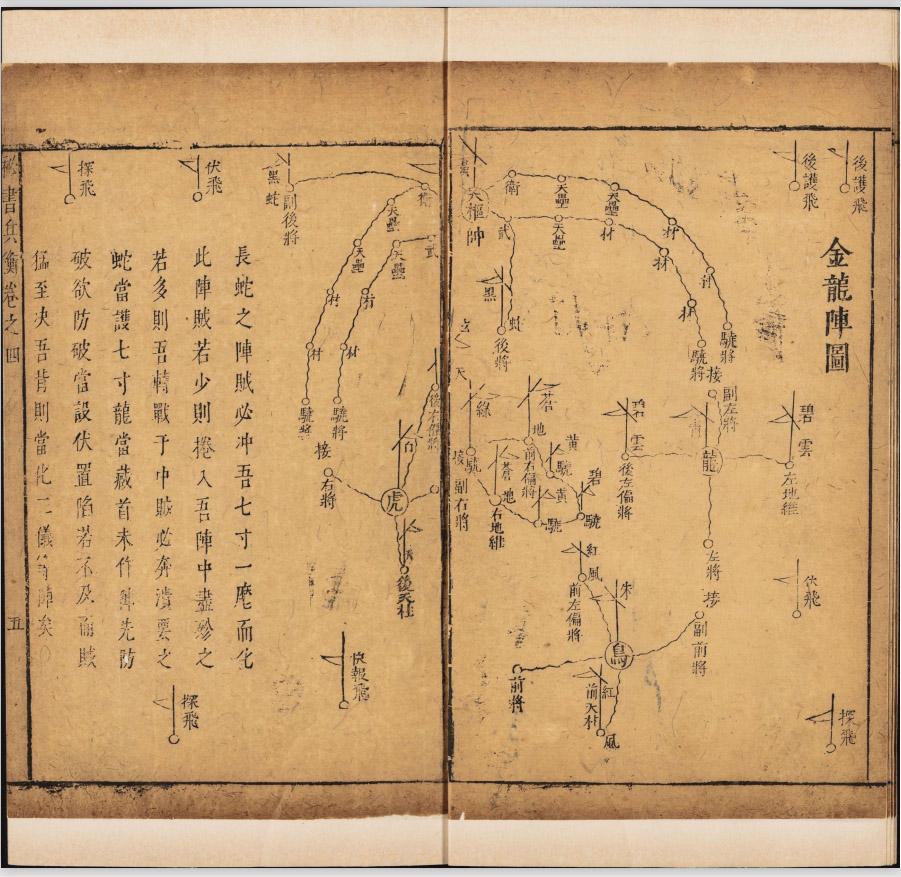 金龍陣圖
後護飛
後護飛
探飛
伏飛
碧
雲
左地維
副左將
龍
左將
接
副前將
驍將
接
驍將
衛
天壘
天壘
天樞
帥
武
黑
蛇
後將
碧
雲
後左偏將
蒼
地
前右偏將
黃
驍
黃
驍
碧
驍
綠
天
驍
副右將
蒼
地
右地維
紅
風
前左偏將
朱
鳥
前將
紅
前天柱
風
黑
蛇
副後將
衛
武
天壘
天壘
天壘
驍將
驍將
接
右將
虎
白
後天柱
伏飛
探飛
快報飛
探飛
長蛇之陣賊必冲吾七寸一麾而化
此陣賊若少則捲入吾陣中盡殄之
若多則吾轉戰于中賊必奔潰要之
蛇當護七寸龍當藏首未作陣先防
破欲防破當設伏置陷若不及而賊
猛至决吾背則當化二儀陣矣
書兵衡卷之四
五